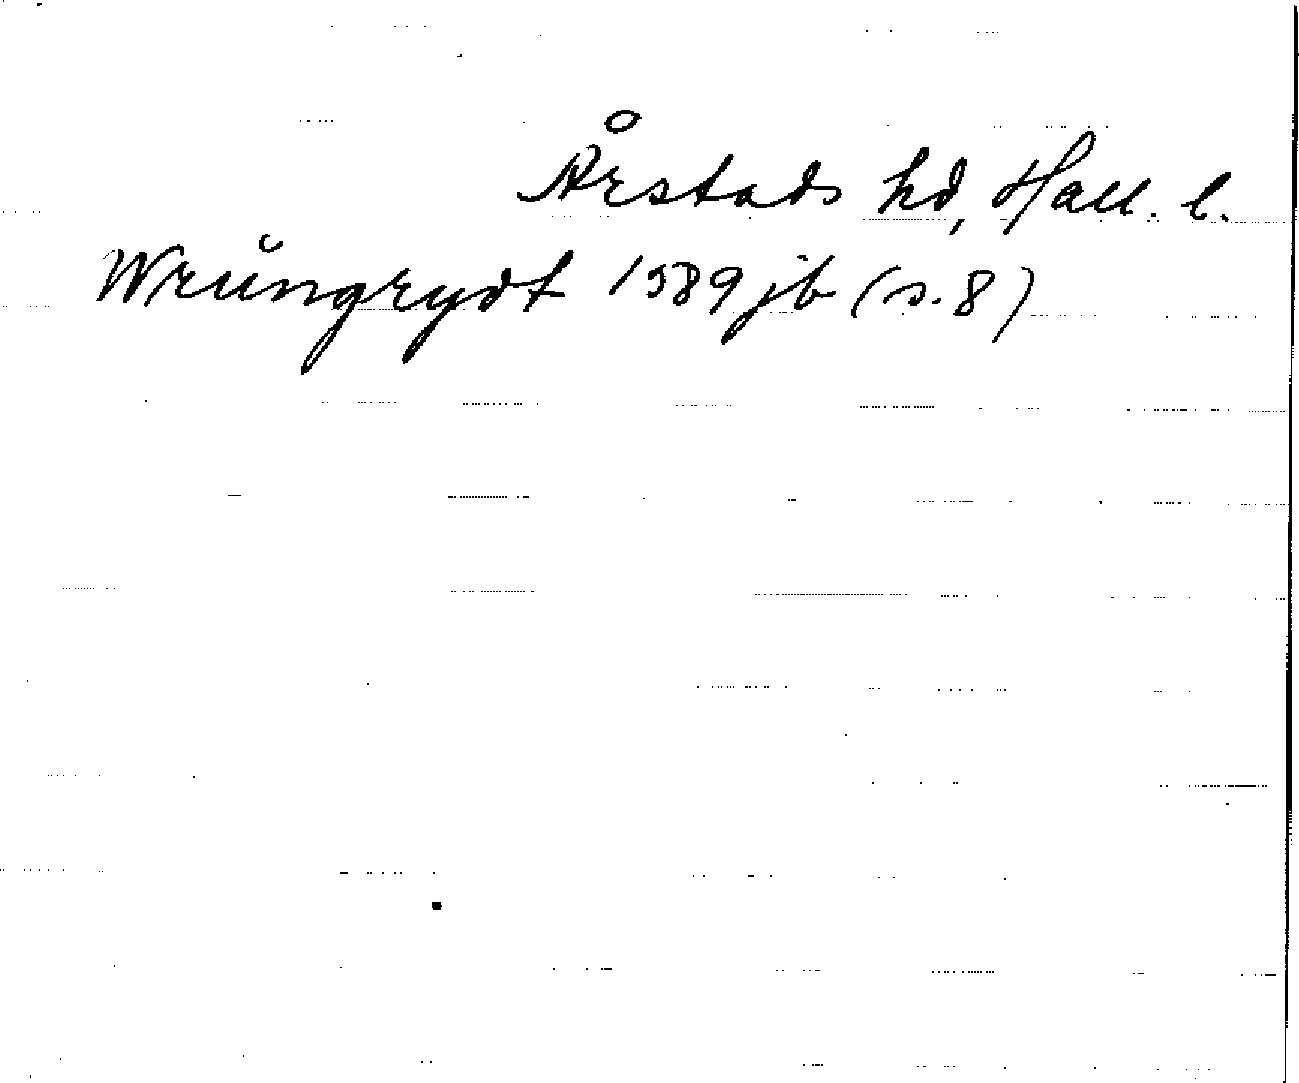 Årstads hd, Hall. l.
Wrŭngrydt 1589 jb (s. 8)